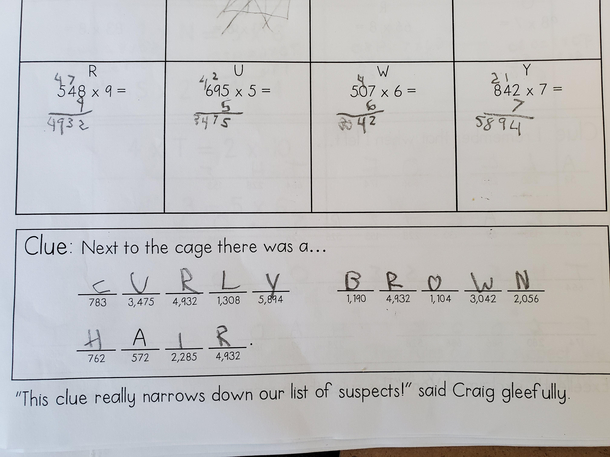 R U W Y
4 7 4 2 4 2 1
548 x 9 = 695 x 5 = 507 x 6 = 842 x 7 =
9 5 6 7
4932 3475 3042 5894
Clue: Next to the cage there was a...
C U R L Y B R O W N
783 3,475 4,932 1,308 5,894 1,190 4,932 1,104 3,042 2,056
H A I R.
762 572 2,285 4,932
"This clue really narrows down our list of suspects!" said Craig gleefully.